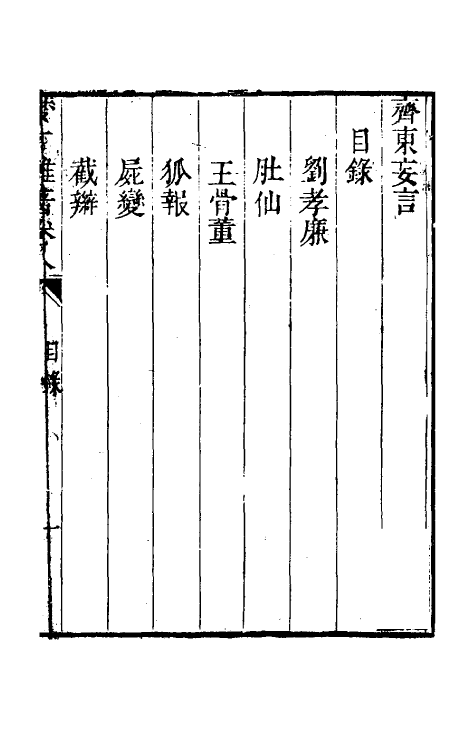 齊東妄言
目錄
劉孝廉
肚仙
王骨董
狐報
屍變
截辮
目錄
一